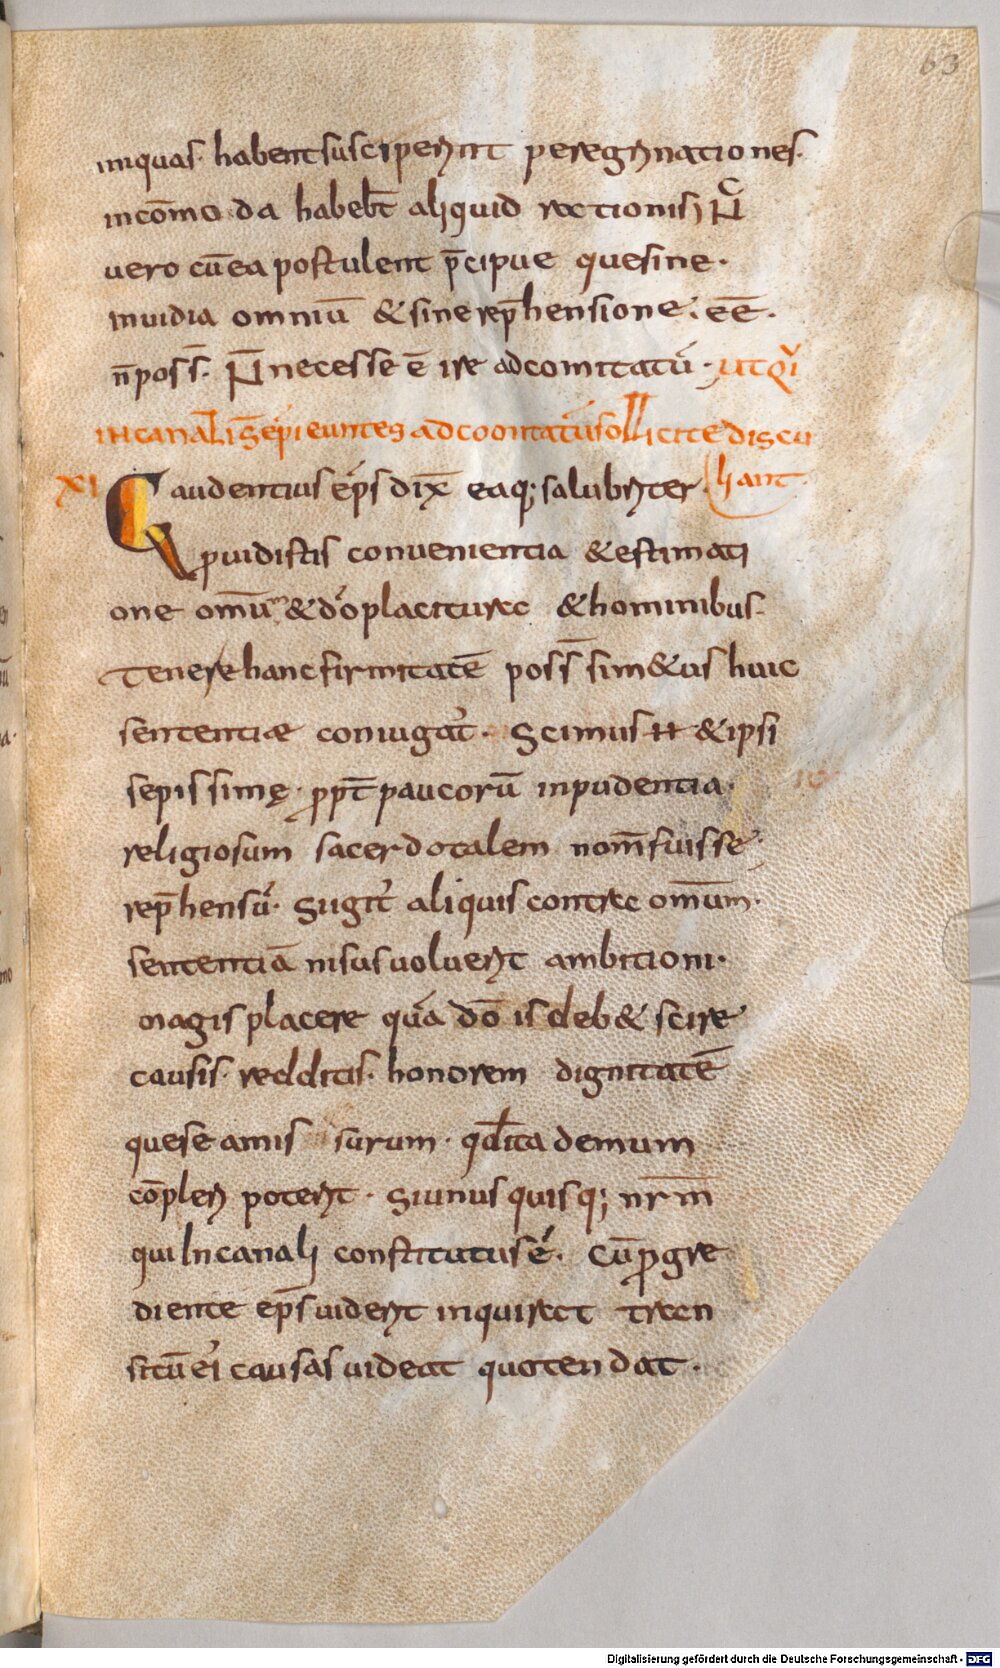 63
iniquas· habent susciperint peregrinationes·
incōmoda habeb̄t aliquid rectionis; N̄c
uero cū ea postulent p̄cipue que sine·
inuidia omniū & sine rep̄hensione· eē·
n̄ poss̄· N̄ necesse ē ire ad comitatū· ut qui
in canali s̄ ep̄i euntes ad comitatū sollicite discu
XI Gaudentius ep̄s dix̄ eaq; salubriter tiant·
puidistis conuenientia & estimati
one omniū & dō placitura & hominibus·
Tenere hanc firmitatē poss̄ si m&us huic
sententiæ coniugat̄· Scimus H & ipsi
sepissimę· ppt̄ paucorū inpudentia·
religiosum sacerdotalem nom̄ fuisse·
rep̄hensū· Si igit̄ aliquis contra omīum·
sententiā nisus uoluerit ambitioni·
magis placere quā dō is deb& scire
causis· redditis· honorem dignitatē
que se amissurum· qd̄ ita demum
cōpleri poterit· si unusquisq; nr̄m
qui In canali constitutus ē· Cū progre
dientē ep̄s uiderit inquirat tran
sitū ei causas uideat quo tendat·
Digitalisierung gefördert durch die Deutsche Forschungsgemeinschaft - DFG